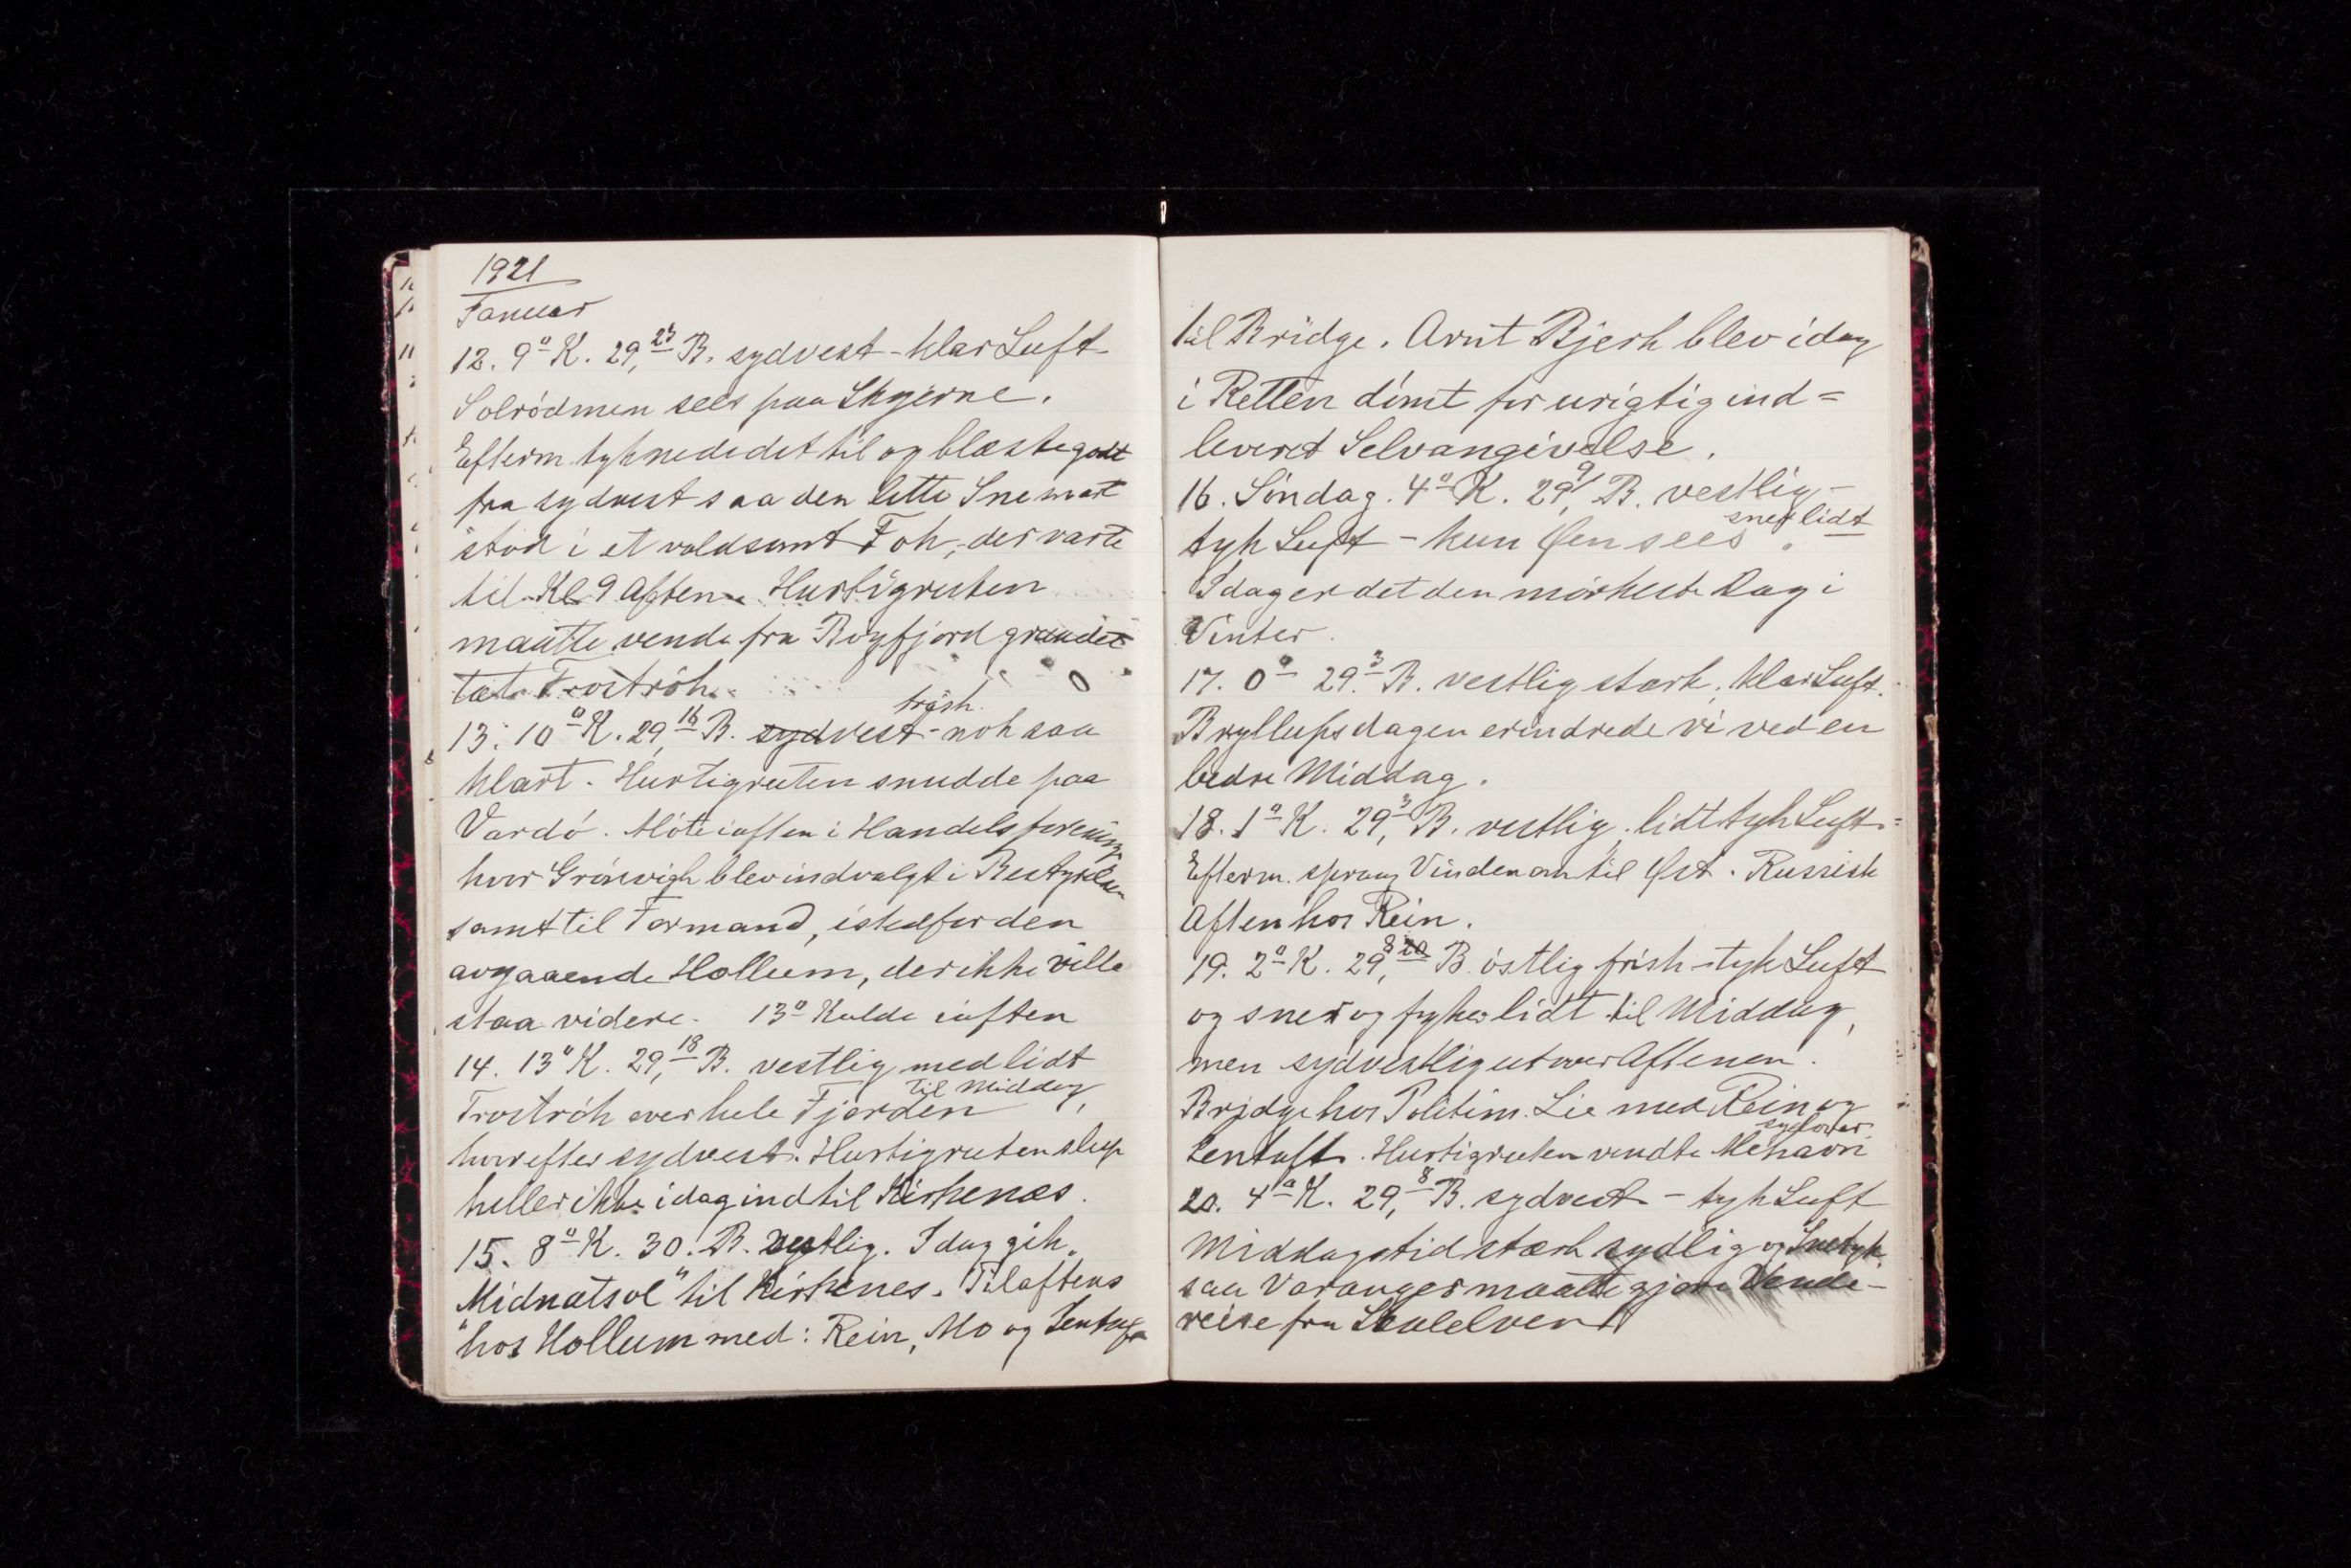 1921
Januar
12. 9° K. 29,25 B. sydvest - klar Luft
Solrödmen sees paa Skyerne.
Efterm. tyknede det til og blæste godt
fra sydvest saa den lette Sne
stod i et voldsomt Fok, der varte
til Kl 9 Aften. Hurtigruten
maatte vende fra Bugfjord grundet
tæt Froströk.
frisk.
13. 10° K. 29,16 B. sydvest - nok saa
klart. Hurtigruten snudde paa
Vardö. Möte iaften i Handelsforening
hvor Grönvigh blev indvalgt i Bestyrelsen
samt til Formand, istedfor den
avgaaende Hollum, der ikke vilde
staa videre. 13° Kulde iaften
14. 13° K. 29,18 B. vestlig med lidt
til Middag,
Froströk over hele Fjorden
hvorefter sydvest. Hurtigruten slap
heller ikke idag ind til Kirkenæs.
15. 8° K. 30. B. vestlig. Idag gik
"Midnatsol" til Kirkenes. Tilaftens
hos Hollum med: Rein, Mo og Tentoft
til Bridge. Arnt Bjerk blev idag
i Retten dömt for urigtig ind=
leveret Selvangivelse.
16. Söndag. 4° K. 29,9 B. vestlig -
sner lidt
tyk Luft - kun Øen sees.
Idag er det den mörkeste Dag i
Vinter.
17. 0° 29.3 B. vestlig stærk, klar Luft.
Bryllupsdagen erindrede vi ved en
bedre Middag.
18. 1° K. 29,3 B. vestlig, lidt tyk Luft =
Efterm. sprang Vinden om til Øst. Russisk
Aften hos Rein.
19. 2° K. 29,8 20 B. östlig frisk - tyk Luft
og sner og fyker lidt til Middag,
men sydvestlig utover Aftenen.
Bridge hos Politim. Lie med Rein og
sydover
Tentoft. Hurtigruten vendte Mehavn
20. 4° K. 29,8 B. sydvest - tyk Luft
Middagstid stærk sydlig og Snetyk
saa Varanger maatte gjöre Vende-
reise fra Skalelven